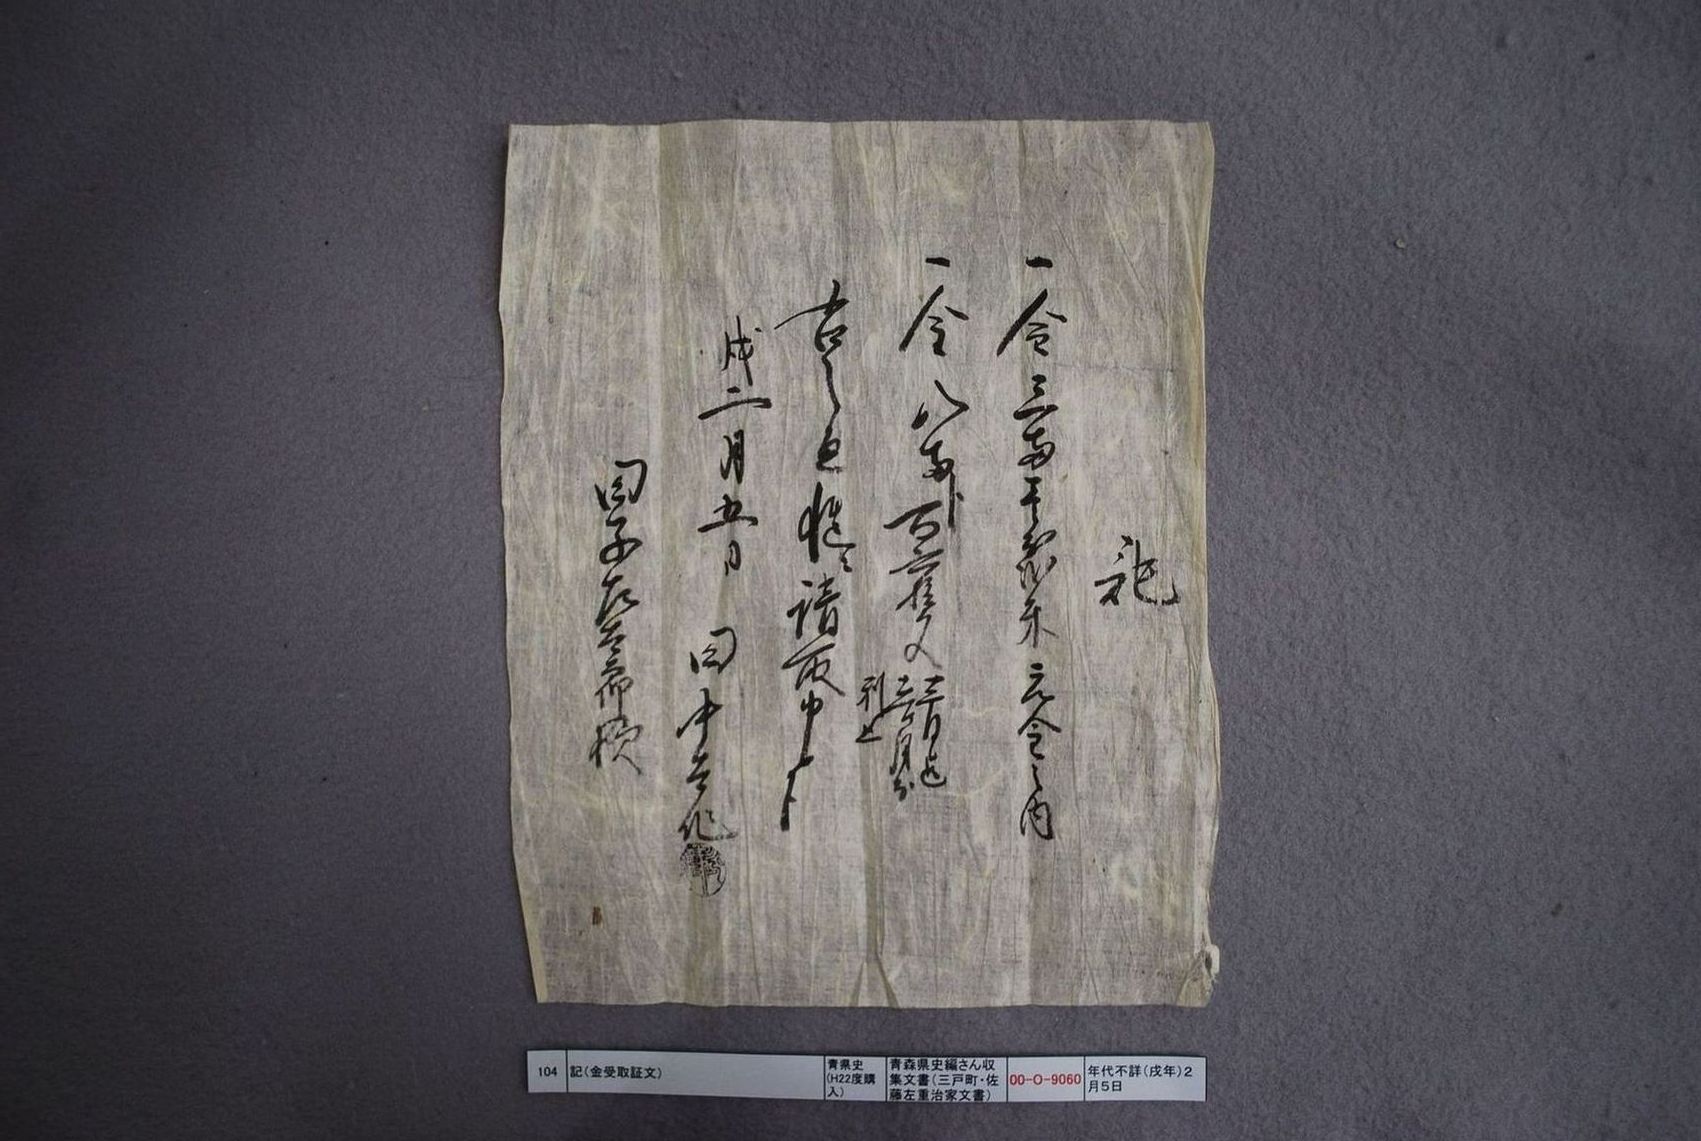 記
一金三両壱分弐朱元金之内
一金八両ト
百六拾文
利上
右之通慥ニ請取申上
戌二月五日
田中吉作
田子左吉郎様
104
記(金受取証文)
青県史
(H22度購
入)
青森県史編さん収
集文書(三戸町・佐
藤左重治家文書)
00-O-9060
年代不詳(戌年)2
月5日